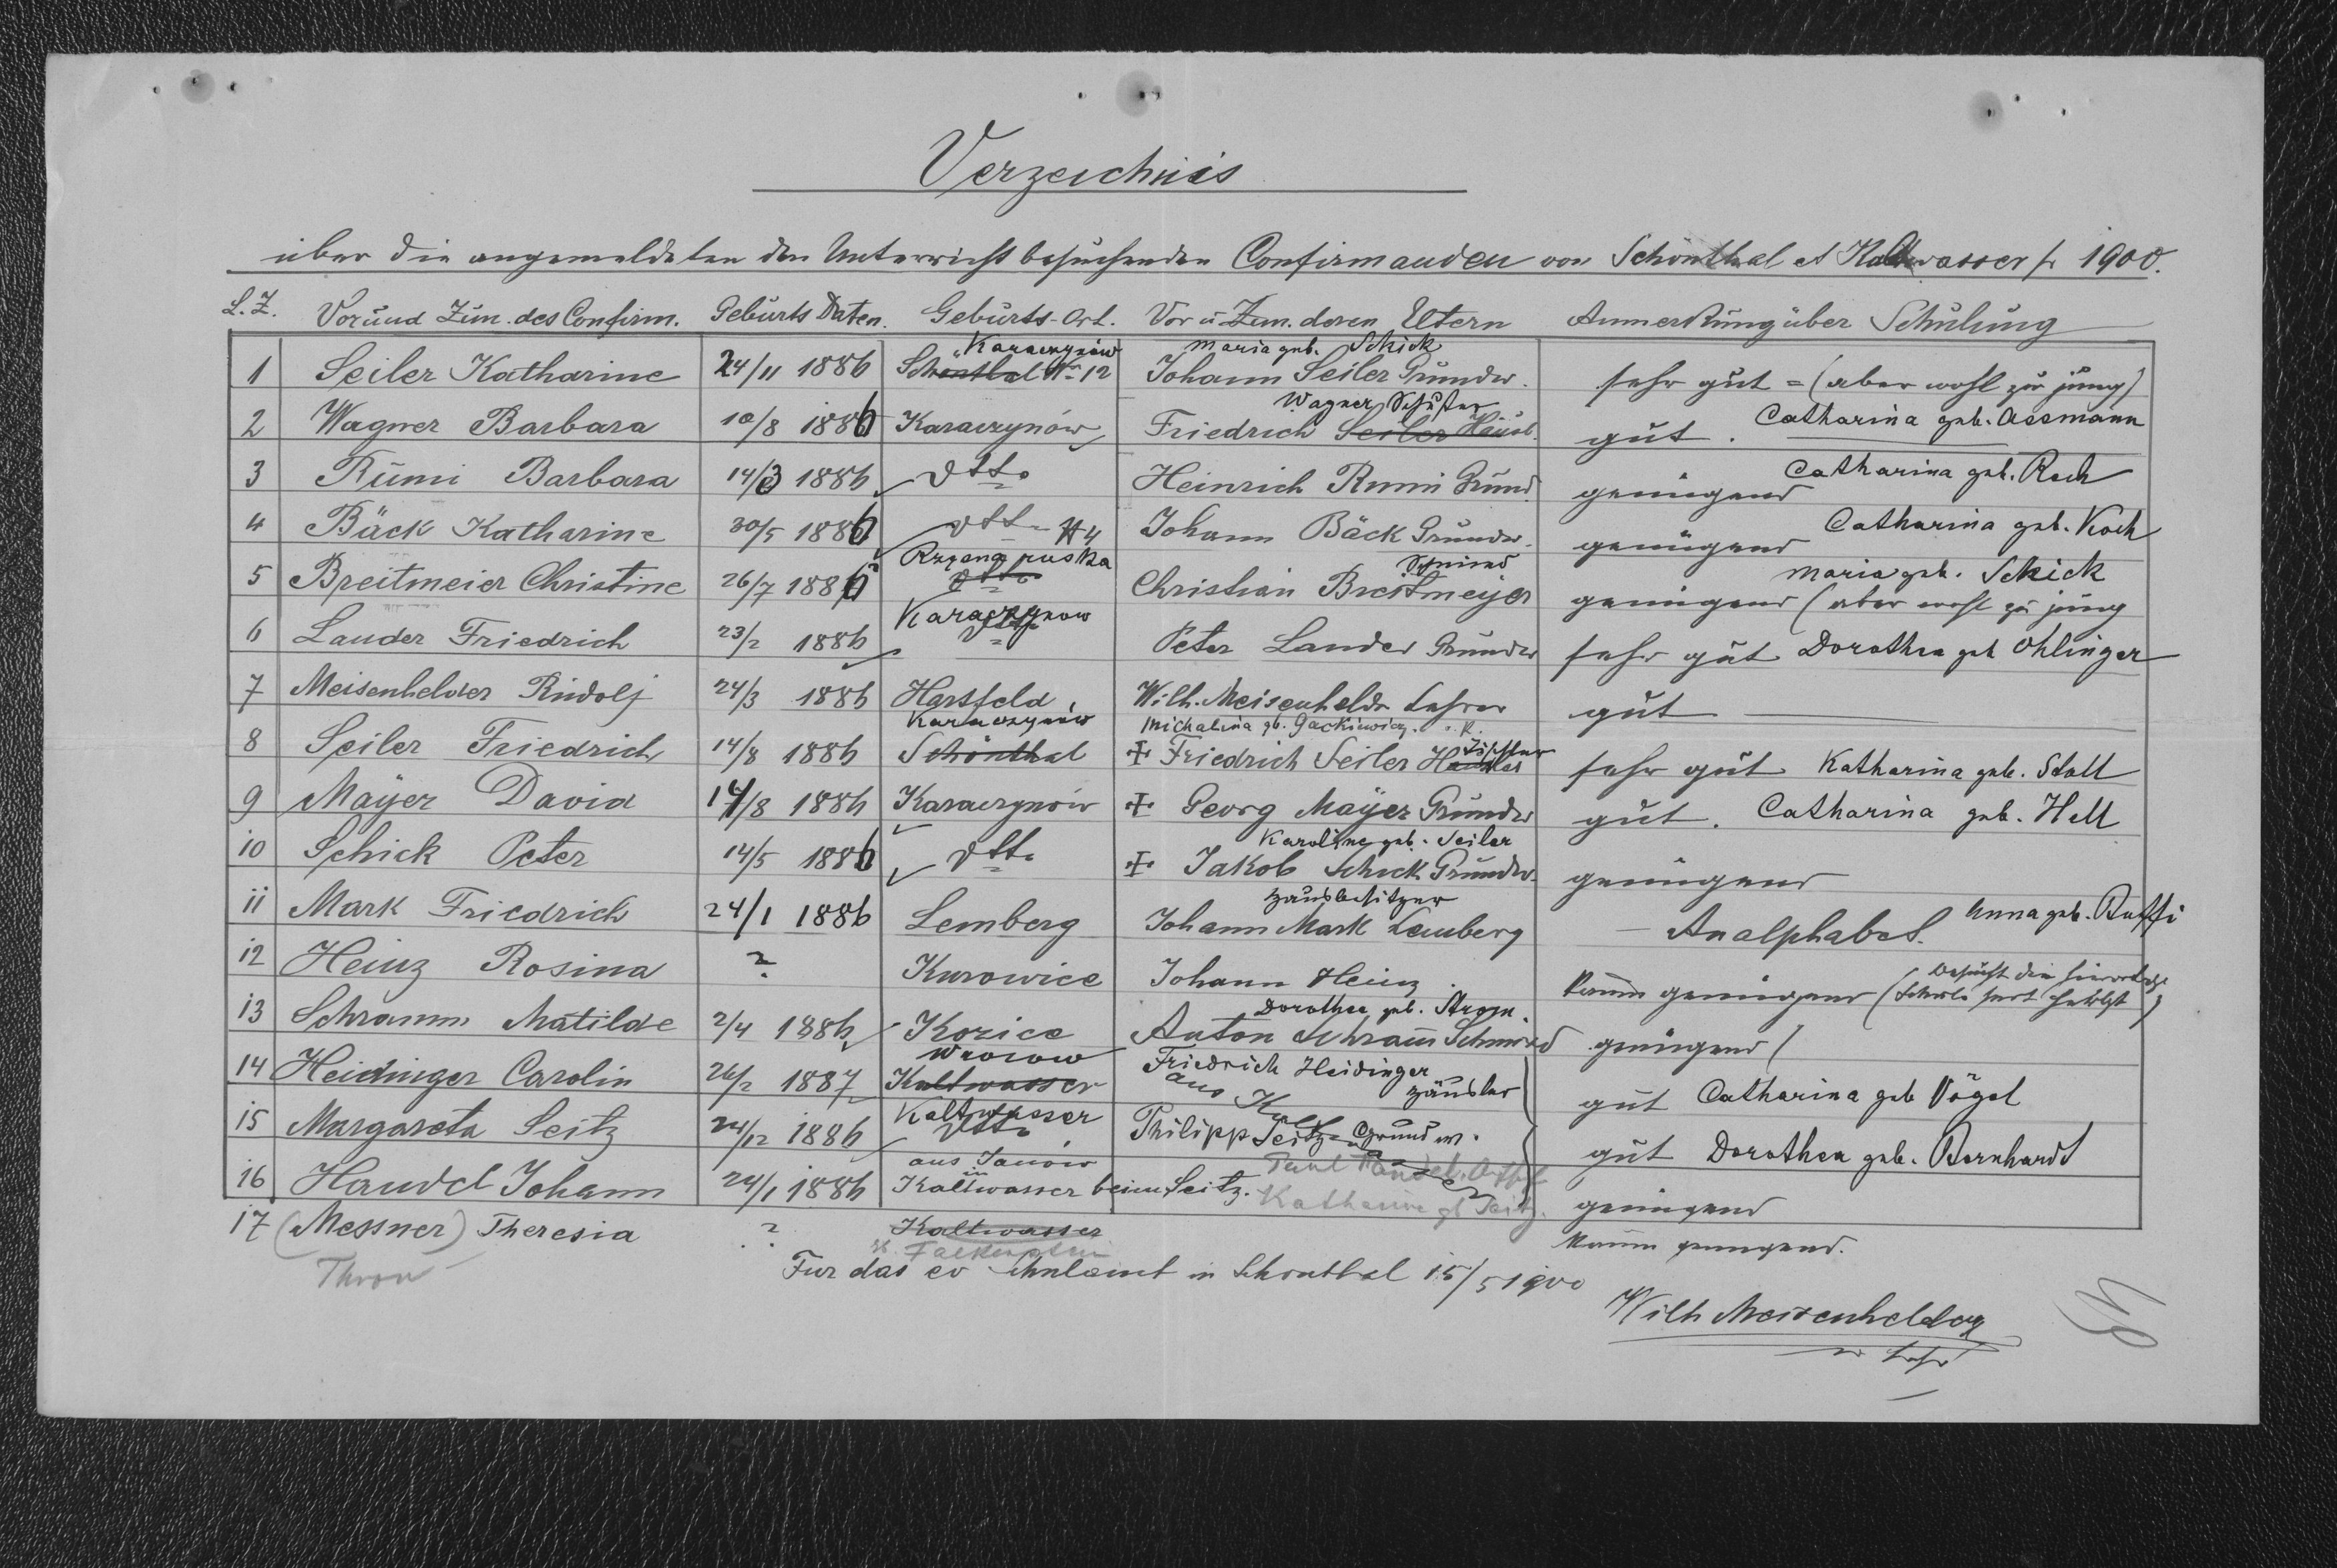 Verzeichnis
über die angemeldeten den Unterricht besuchenden Confirmanden von Schönthal et Kaltwasser pr 1900.
L. Z. Vor und Zun. des Confirm. Geburts Daten. Geburts-Ort. Vor u Zun. deren Eltern Anmerkung über Schulung
Karaczynów Maria geb. Schick
1 Seiler Katharine 24/11 1886 Schönthal No 12 Johann Seiler Grundw. sehr gut = (aber wohl zu jung)
Wagner Schuster
2 Wagner Barbara 10/8 1886 Karaczynów Friedrich Seiler Häusl. gut. Catharina geb. Assmann
3 Rumi Barbara 14/3 1886 dtto Heinrich Rumi Grund. genügend Catharina geb. Koch
4 Bäck Katharine 30/5 1886 dtto N 4 Johann Bäck Grundw. genügend Catharina geb. Koch
Rzęsna ruska Schmied
5 Breitmeier Christine 26/7 1886 dtto Christian Breitmeijer genügend (aber wohl zu jung Maria geb. Schick
Karaczynow
6 Lander Friedrich 23/2 1886 dtto Peter Lander Grundw sehr gut Dorothea geb Ohlinger
7 Meisenhelder Rudolf 24/3 1886 Hartfeld Wilh. Meisenhelder Lehrer gut
Karaczynów Michalina gb. Gackiewicz.
8 Seiler Friedrich 14/8 1886 Schönthal + Friedrich Seiler Häusler Tischler sehr gut Katharina geb. Stall
9 Mayer David 14/8 1886 Karaczynów + Georg Mayer Grundw gut. Catharina geb. Hell
Karoline geb. Seiler
10 Schick Peter 14/5 1886 dtto + Jakob Schick Grundw. genügend
Hausbesitzer
11 Mark Friedrich 24/1 1886 Lemberg Johann Mark Lemberg Analphabet. Anna geb.
12 Heinz Rosina ? Kurowice Johann Heinz kaum genügend (besucht die
Dorothea geb.
13 Schramm Matilde 2/4 1886 Korice Anton Schramm Schmied genügend
Wrocow Friedrich Heidinger
14 Heidinger Carolin 26/2 1887 Kaltwasser Häusler gut Catharina geb Vögel
Kaltwasser
15 Margareta Seitz 24/12 1886 dtto Philipp Seitz Grundw. gut Dorothea geb. Bernhardt
aus Janów Paul Handel
16 Handel Johann 24/1 1886 in Kaltwasser beim Seitz. Katharine gb Seitz. genügend
17 (Messner) Theresia ? Kaltwasser kaum genügend.
Thron Falkenstein
Fur das ev Schulamt in Schonthal 15/5 1900
Wilh Meisenhelder
Lehr